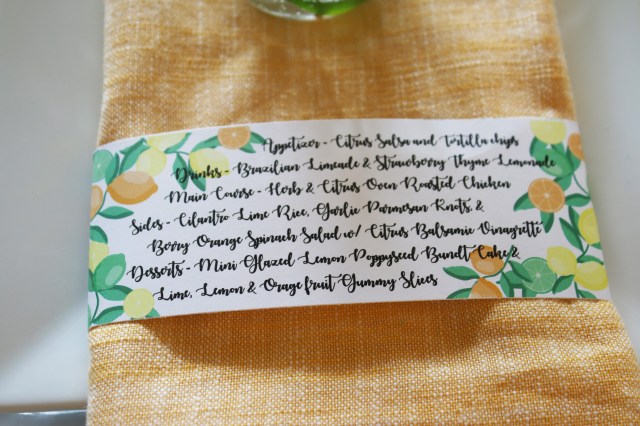 Appetizer - Citrus Salsa and Tortilla chips
Drinks - Brazilian Limeade & Strawberry Thyme Lemonade
Main Course - Herb & Citrus Oven Roasted Chicken
Sides - Cilantro Lime Rice, Garlic Parmesan Knots, &
Berry Orange Spinach Salad w/ Citrus Balsamic Vinagrette
Desserts - Mini Glazed Lemon Poppyseed Bundt Cake &
Lime, Lemon & Orage fruit Gummy Slices